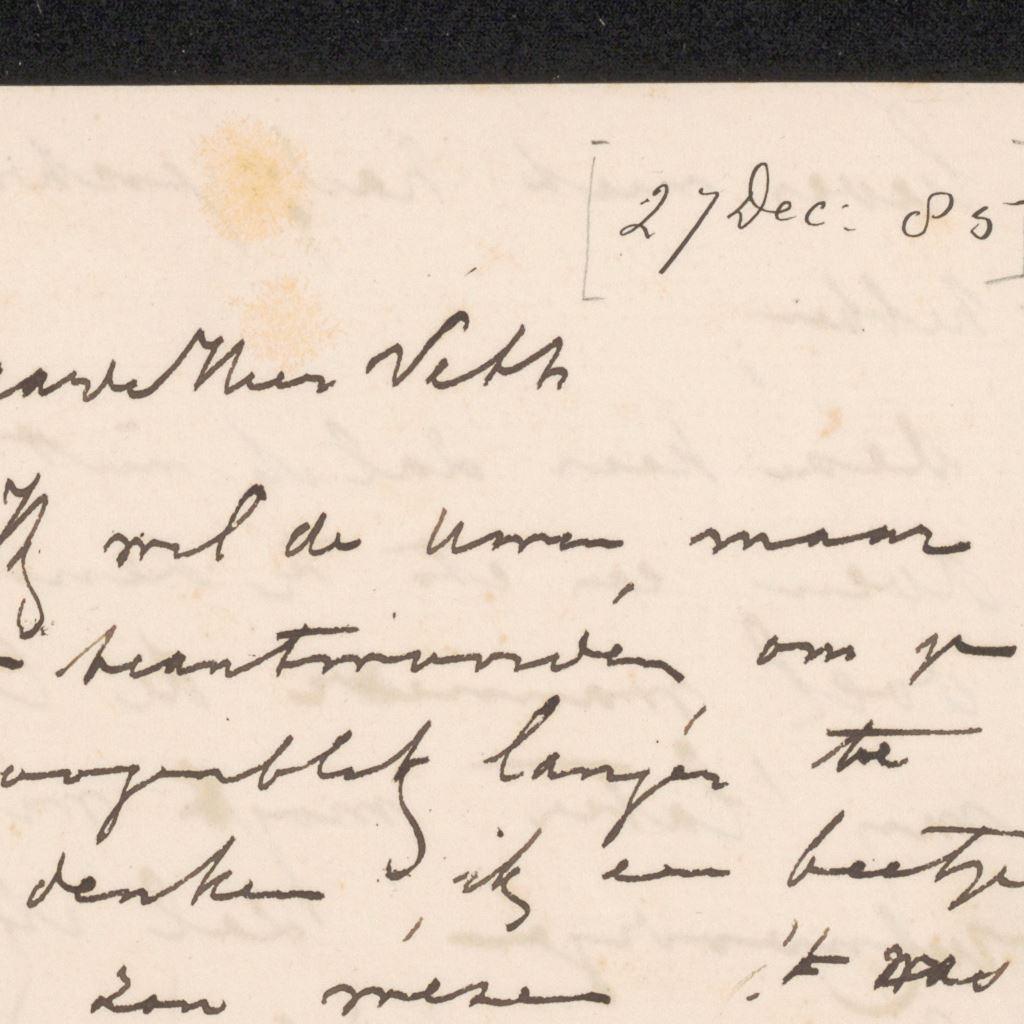 [27 Dec: 85]
Heer Veth
Ik wil de uwen maar
beantwoorden, om u
oogenblik langer te
denken, ik een beetje
zou wezen. 't was